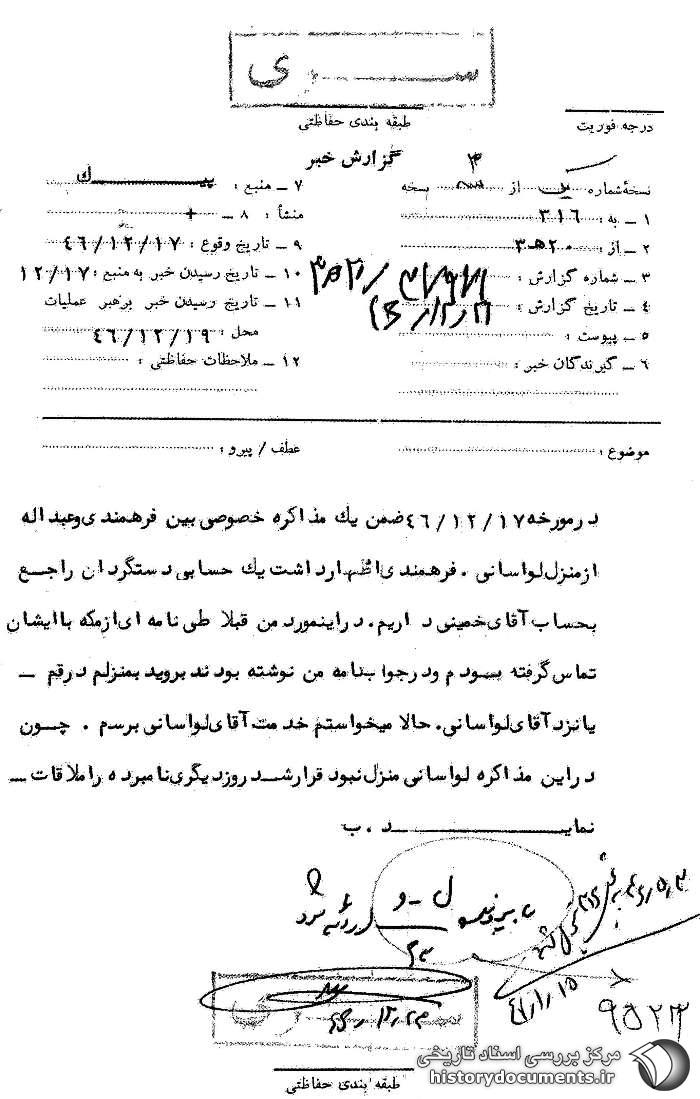 ســـری
طبقه بندی حفاظتی
درجه فوریت
گزارش خبر
نسخهٔ شماره از ۳ نسخه
۱ ـ به : ۳۱۶
۲ ـ از : ۲۰هـ۳
۳ ـ شماره گزارش :
۴ ـ تاریخ گزارش :
۵ ـ پیوست :
۶ ـ گیرندگان خبر :
۷ ـ منبع :
۸ ـ منشأ : +
۹ ـ تاریخ وقوع : ۴۶/۱۲/۱۷
۱۰ ـ تاریخ رسیدن خبر به منبع : ۱۲/۱۷
۱۱ ـ تاریخ رسیدن خبر برهبر عملیات
محل : ۴۶/۱۲/۱۹
۱۲ ـ ملاحظات حفاظتی :
موضوع :
عطف / پیرو :
درمورخه ۴۶/۱۲/۱۷ ضمن یك مذاكره خصوصی بین فرهمندی وعبداله
ازمنزل لواسانی . فرهمندی اظهارداشت یك حسابی دستگردان راجع
بحساب آقای خمینی داریم. دراینمورد من قبلا طی نامه ای ازمكه باایشان
تماس گرفته بـودم ودرجواب نامه من نوشته بودند بروید بمنزلم درقم ـ
یا نزد آقای لواسانی. حالا میخواستم خدمت آقای لواسانی برسم . چـون
دراین مذاكره لواسانی منزل نبود قرارشـد روزدیگری نامبرده راملاقات ـ
نمایـــد . ب
۹۵۲۳
ســـری
طبقه بندی حفاظتی
مرکز بررسی اسناد تاریخی
historydocuments.ir